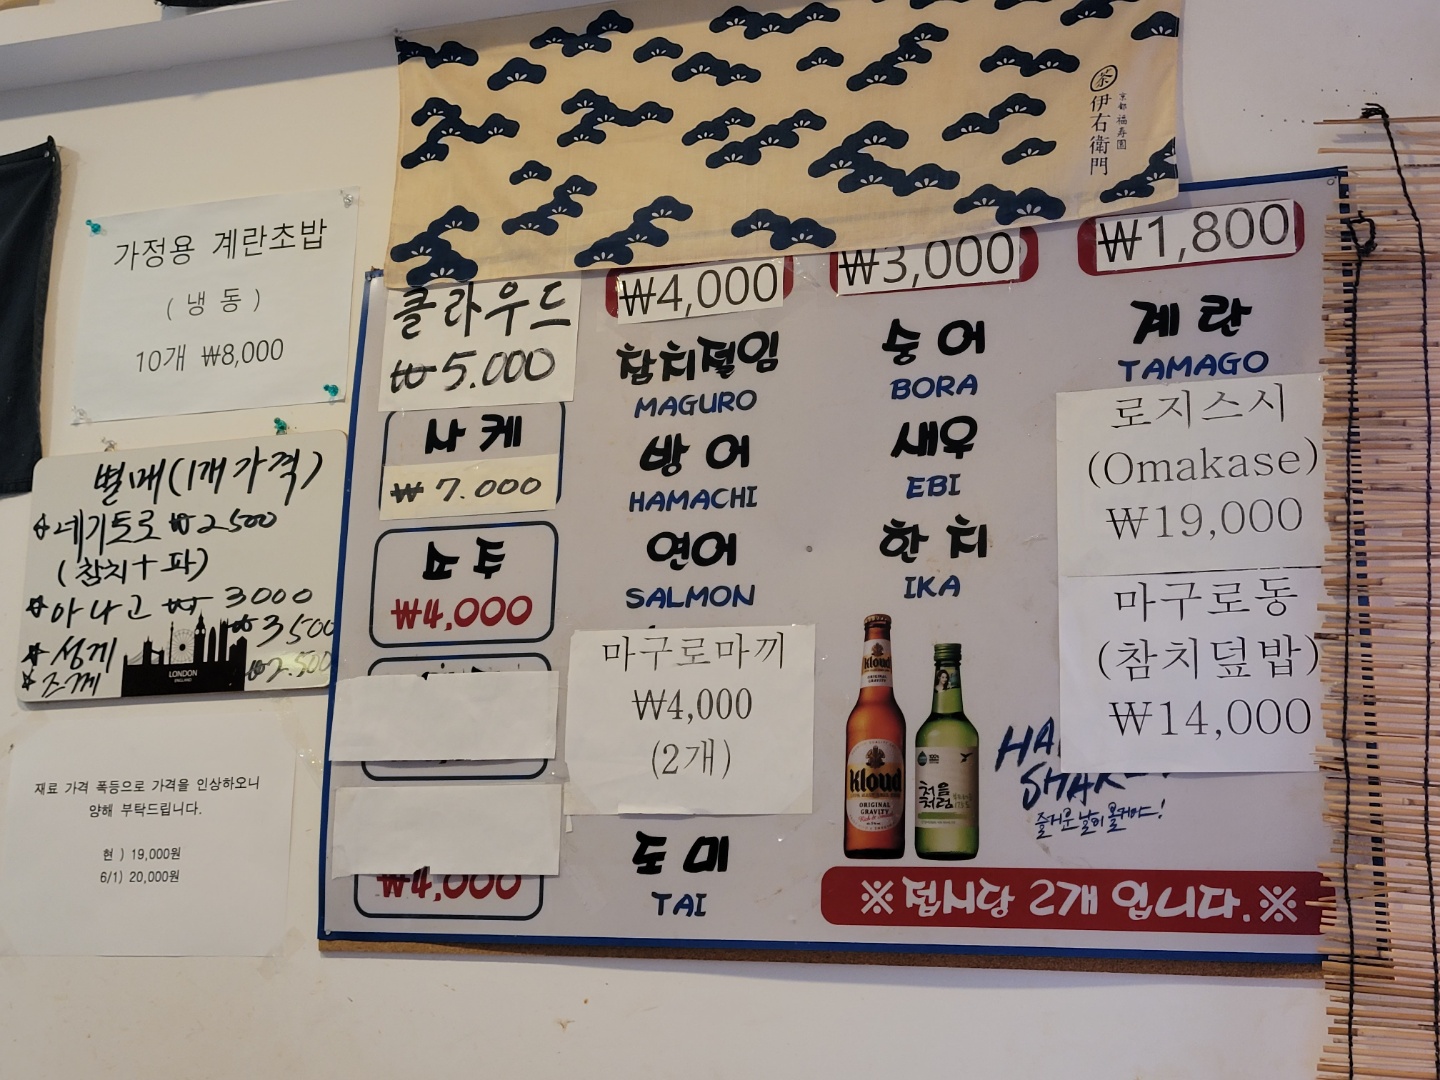 茶
伊右衛門
京都 福寿園
가정용 계란초밥
( 냉 동 )
10개 ₩8,000
별매(1개 가격)
네기토로 ₩2500
(참치+파)
아나고 ₩ 3000
성게 ₩3500
조개 ₩2.500
LONDON
ENGLAND
재료 가격 폭등으로 가격을 인상하오니
양해 부탁드립니다.
현 ) 19,000원
6/1) 20,000원
클라우드
₩5.000
사케
₩7.000
소주
₩4,000
₩4,000
₩4,000
참치절임
MAGURO
방어
HAMACHI
연어
SALMON
마구로마끼
₩4,000
(2개)
도미
TAI
₩3,000
숭어
BORA
새우
EBI
한치
IKA
₩1,800
계란
TAMAGO
로지스시
(Omakase)
₩19,000
마구로동
(참치덮밥)
₩14,000
Kloud
Kloud
ORIGINAL
GRAVITY
처음
처럼
즐거운 날이 올거야~!
※접시당 2개 입니다.※